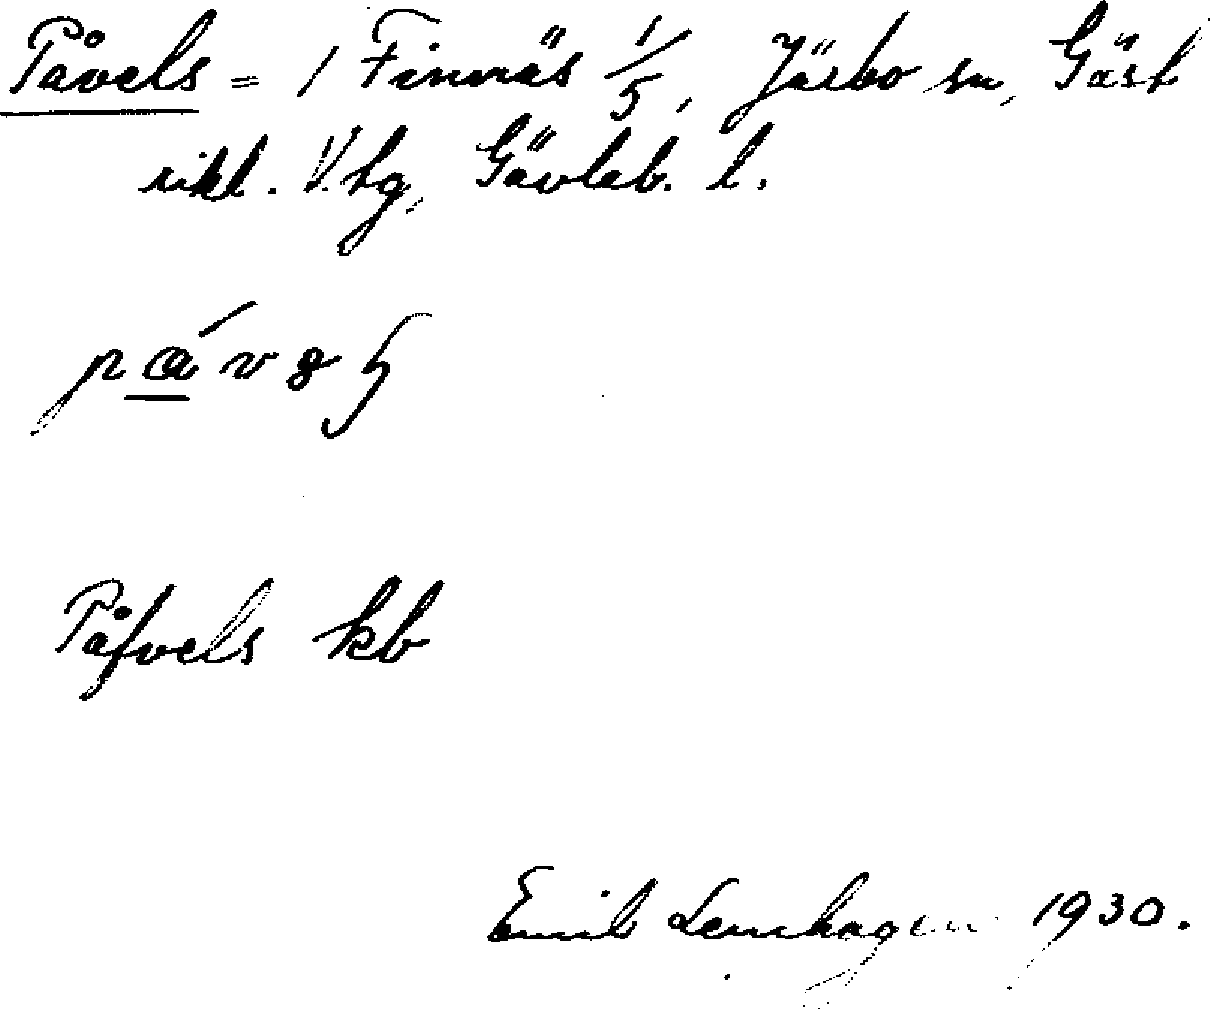 Påvels = 1 Finnäs 1/5, Järbo sn, Gäst
rikl. V. tg, Gävleb. l.
Påfvels kb
Emil Lenhagen 1930.